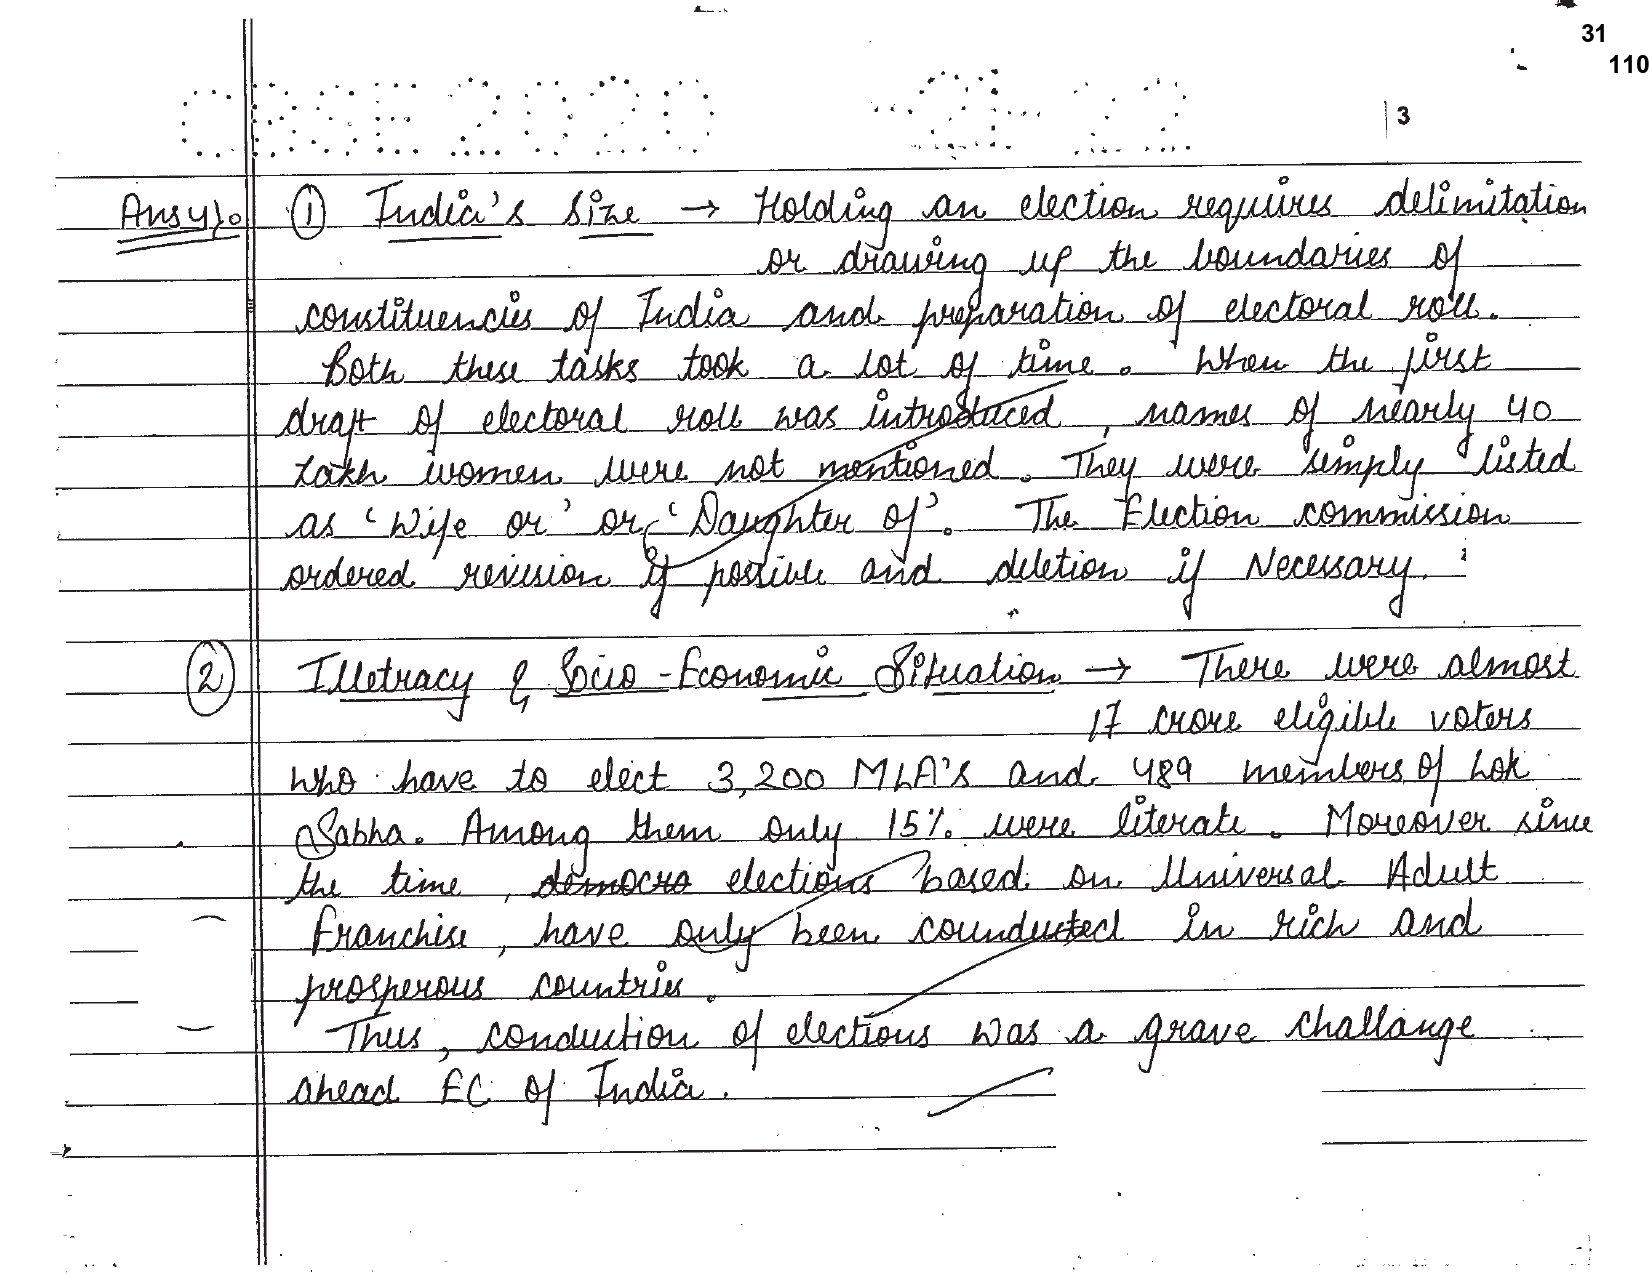 31
110
CBSE 2020
3
Ans 4). ① India's Size → Holding an election requires delimitation
or drawing up the boundaries of
constituencies of India and preparation of electoral roll.
Both these tasks took a lot of time. When the first
draft of electoral roll was introduced, names of nearly 40
lakh women were not mentioned. They were simply listed
as 'Wife or' or 'Daughter of'. The Election commission
ordered revision if possible and deletion if Necessary.
② Illetracy & Socio-Economic Situation → There were almost
17 crore eligible voters
who have to elect 3,200 MLA's and 489 members of Lok
Sabha. Among them only 15% were literate. Moreover since
the time, democra elections based on Universal Adult
Franchise, have only been counducted in rich and
prosperous countries.
Thus, conduction of elections was a grave challange
ahead EC of India.